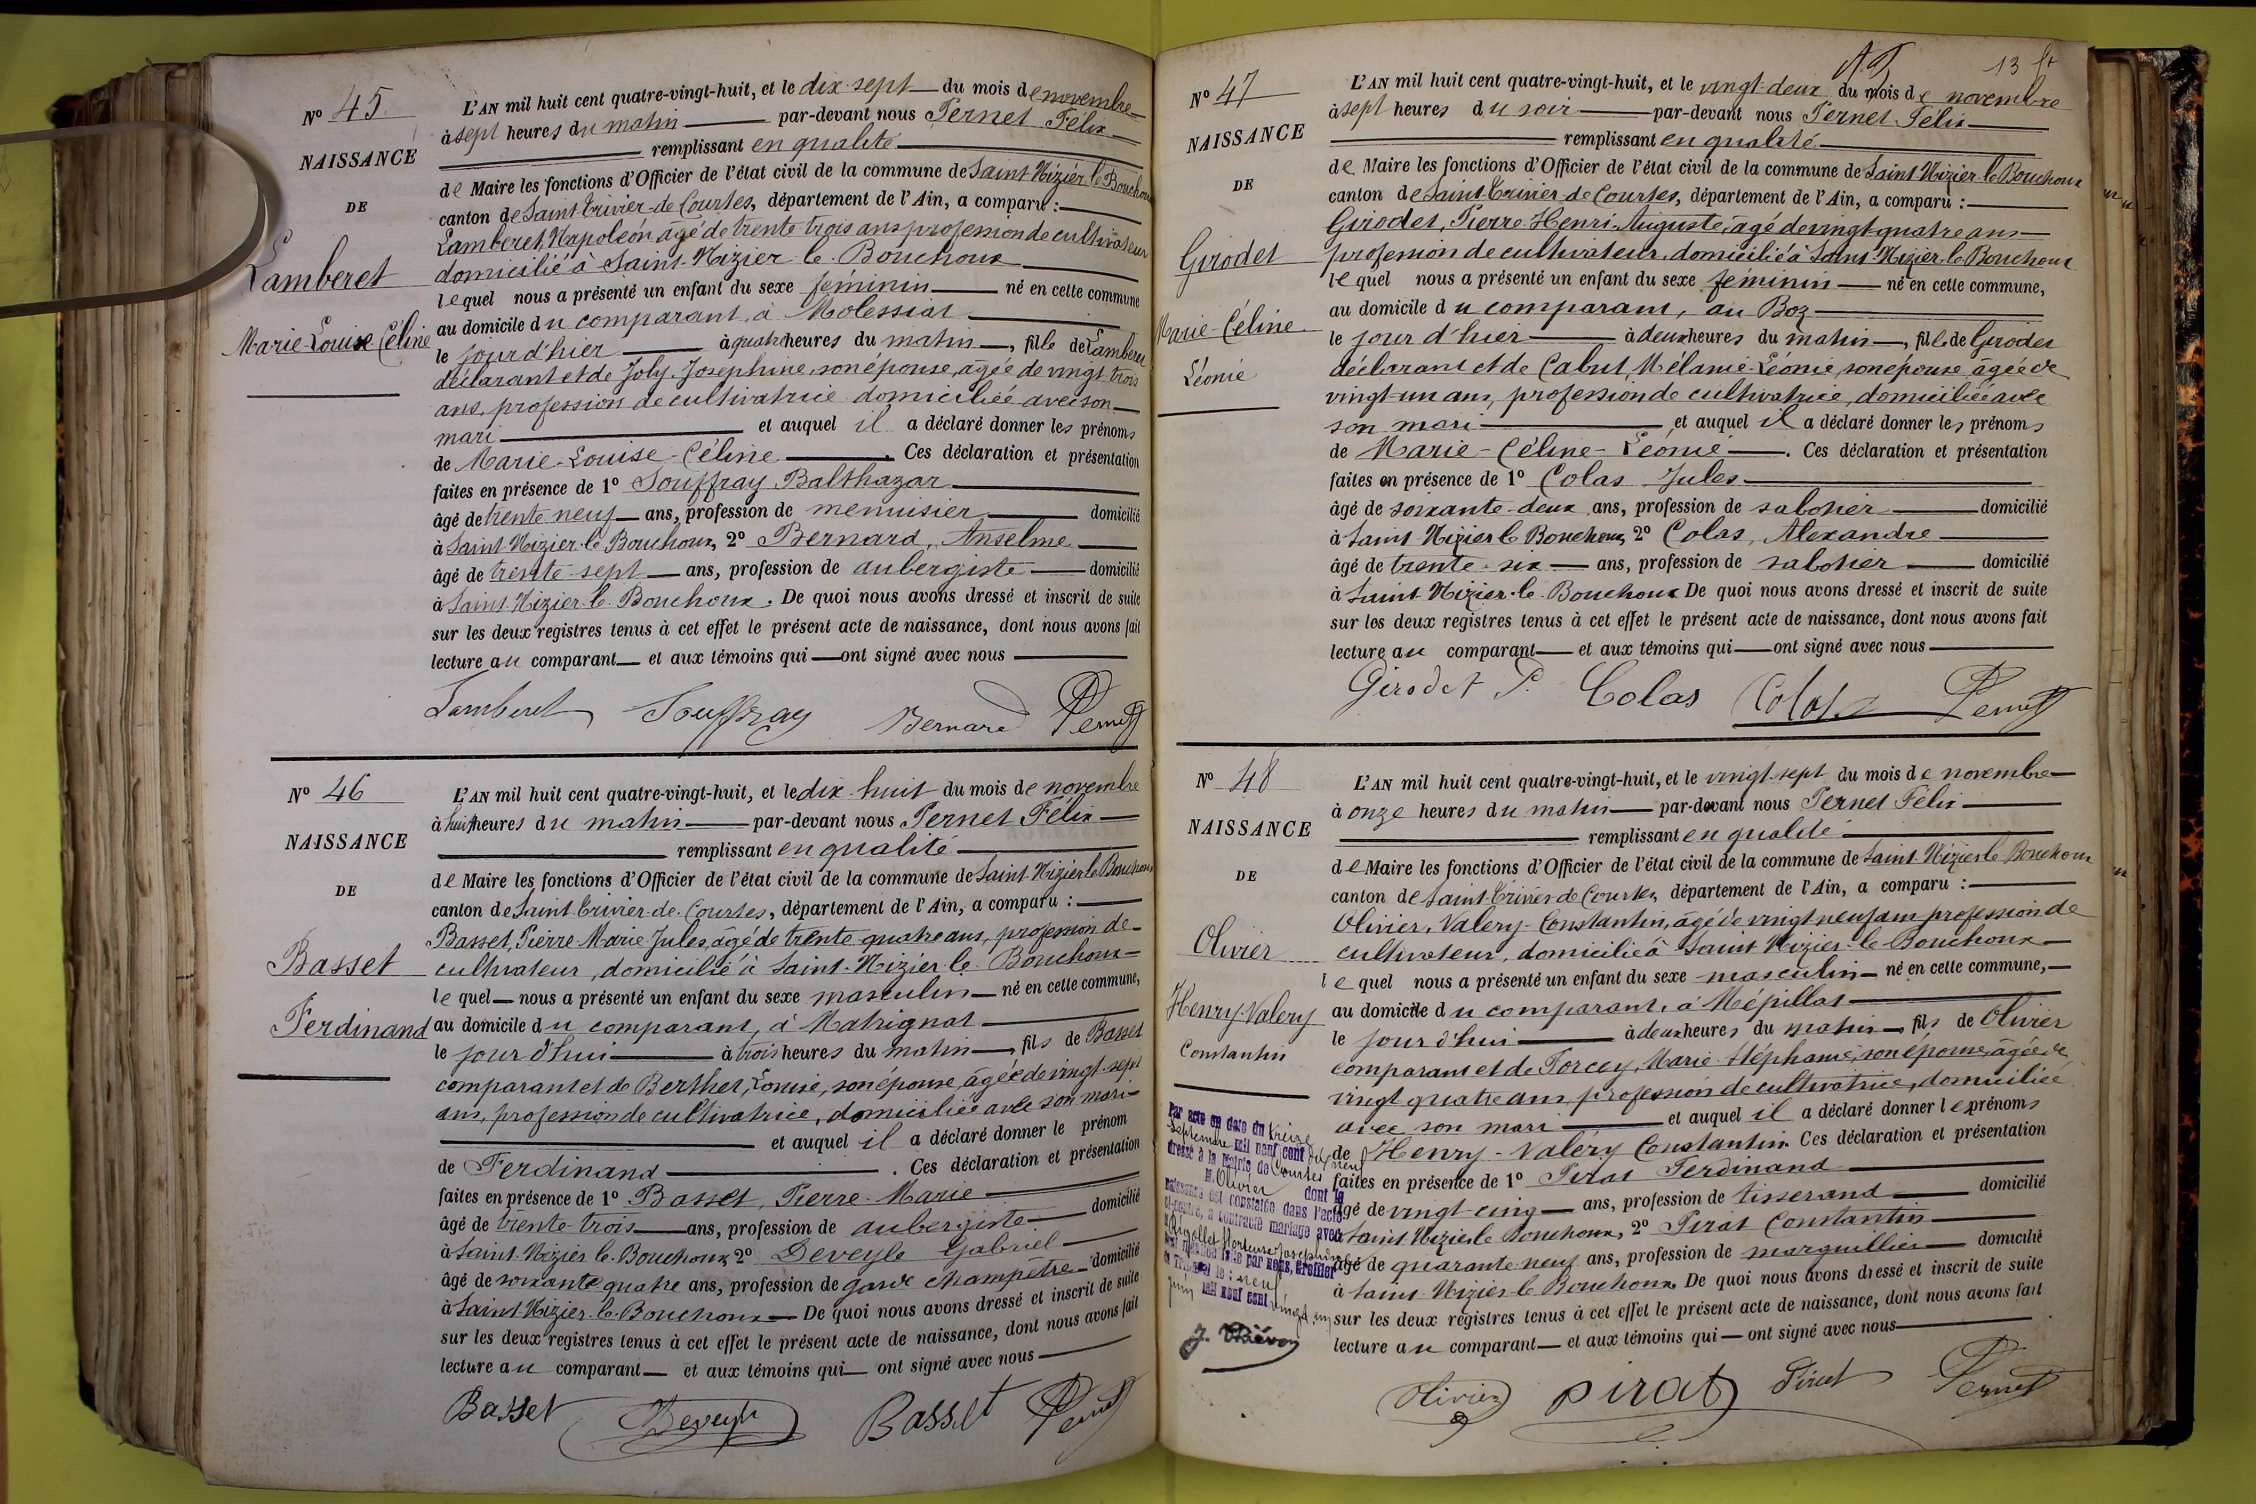 Nº 45
NAISSANCE
DE
Lamberet
Marie-Louise Céline
L'AN mil huit cent quatre-vingt-huit, et le dix-sept du mois de novembre
à sept heures du matin par-devant nous Pernet Félix
remplissant en qualité
de Maire les fonctions d'Officier de l'état civil de la commune de Saint-Nizier-le-Bouchoux
canton de Saint-Trivier-de-Courtes, département de l'Ain, a comparu :
Lamberet, Napoléon, agé de trente trois ans profession de cultivateur
domicilié à Saint-Nizier-le-Bouchoux
lequel nous a présenté un enfant du sexe féminin né en cette commune
au domicile du comparant, à Molessiat
le jour d'hier à quatre heures du matin, fille de Lamberet
déclarant et de Joly, Josephine, son épouse, âgée de vingt trois
ans, profession de cultivatrice domiciliée avec son
mari et auquel il a déclaré donner les prénoms
de Marie-Louise-Céline. Ces déclaration et présentation
faites en présence de 1º Souffray Balthazar
âgé de trente neuf ans, profession de menuisier domicilié
à Saint-Nizier-le-Bouchoux, 2º Bernard, Anselme
âgé de trente-sept ans, profession de aubergiste domicilié
à Saint-Nizier-le-Bouchoux. De quoi nous avons dressé et inscrit de suite
sur les deux registres tenus à cet effet le présent acte de naissance, dont nous avons fait
lecture au comparant et aux témoins qui ont signé avec nous
Lamberet Souffray Bernard Pernet
Nº 46
NAISSANCE
DE
Basset
Ferdinand
L'AN mil huit cent quatre-vingt-huit, et le dix-huit du mois de novembre
à huit heures du matin par-devant nous Pernet Félix
remplissant en qualité
de Maire les fonctions d'Officier de l'état civil de la commune de Saint-Nizier-le-Bouchoux
canton de Saint-Trivier-de-Courtes, département de l'Ain, a comparu :
Basset, Pierre-Marie Jules, âgé de trente-quatre ans, profession de
cultivateur, domicilié à Saint-Nizier-le-Bouchoux
lequel nous a présenté un enfant du sexe masculin né en cette commune,
au domicile du comparant, à Matrignat
le jour d'hui à trois heures du matin, fils de Basset
comparant et de Berthet, Louise, son épouse, âgée de vingt-sept
ans, profession de cultivatrice, domiciliée avec son mari
et auquel il a déclaré donner le prénom
de Ferdinand. Ces déclaration et présentation
faites en présence de 1º Basset, Pierre-Marie
âgé de trente-trois ans, profession de aubergiste domicilié
à Saint-Nizier-le-Bouchoux, 2º Deveyle Gabriel
âgé de soixante quatre ans, profession de garde champetre domicilié
à Saint-Nizier-le-Bouchoux De quoi nous avons dressé et inscrit de suite
sur les deux registres tenus à cet effet le présent acte de naissance, dont nous avons fait
lecture au comparant et aux témoins qui ont signé avec nous
Basset Deveyle Basset Pernet
13
Nº 47
NAISSANCE
DE
Girodet
Marie-Céline
Léonie
L'AN mil huit cent quatre-vingt-huit, et le vingt-deux du mois de novembre
à sept heures du soir par-devant nous Pernet Félix
remplissant en qualité
de Maire les fonctions d'Officier de l'état civil de la commune de Saint-Nizier-le-Bouchoux
canton de Saint-Trivier-de-Courtes, département de l'Ain, a comparu :
Girodet, Pierre-Henri-Auguste, âgé de vingt-quatre ans
profession de cultivateur, domicilié à Saint-Nizier-le-Bouchoux
lequel nous a présenté un enfant du sexe féminin né en cette commune,
au domicile du comparant, au Boz
le jour d'hier à deux heures du matin, fille de Girodet
déclarant et de Cabut, Mélanie-Léonie, son épouse, âgée de
vingt-un ans, profession de cultivatrice, domiciliée avec
son mari et auquel il a déclaré donner les prénoms
de Marie-Céline-Léonie. Ces déclaration et présentation
faites en présence de 1º Colas Jules
âgé de soixante-deux ans, profession de sabotier domicilié
à Saint-Nizier-le-Bouchoux, 2º Colas, Alexandre
âgé de trente-six ans, profession de sabotier domicilié
à Saint-Nizier-le-Bouchoux De quoi nous avons dressé et inscrit de suite
sur les deux registres tenus à cet effet le présent acte de naissance, dont nous avons fait
lecture au comparant et aux témoins qui ont signé avec nous
Girodet P. Colas Colas Pernet
Nº 48
NAISSANCE
DE
Olivier
Henry-Valery
Constantin
L'AN mil huit cent quatre-vingt-huit, et le vingt-sept du mois de novembre
à onze heures du matin par-devant nous Pernet Félix
remplissant en qualité
de Maire les fonctions d'Officier de l'état civil de la commune de Saint-Nizier-le-Bouchoux
canton de Saint-Trivier-de-Courtes, département de l'Ain, a comparu :
Olivier, Valery-Constantin, âgé de vingt neuf ans profession de
cultivateur, domicilié à Saint-Nizier-le-Bouchoux
lequel nous a présenté un enfant du sexe masculin né en cette commune,
au domicile du comparant, à Mépillat
le jour d'hui à deux heures du matin, fils de Olivier
comparant et de Torcey, Marie-Stéphanie, son épouse, âgée de
vingt quatre ans, profession de cultivatrice, domiciliée
avec son mari et auquel il a déclaré donner les prénoms
de Henry-Valéry Constantin. Ces déclaration et présentation
faites en présence de 1º Pirat Ferdinand
âgé de vingt-cinq ans, profession de tisserand domicilié
à Saint-Nizier-le-Bouchoux, 2º Pirat Constantin
âgé de quarante-neuf ans, profession de marguillier domicilié
à Saint-Nizier-le-Bouchoux De quoi nous avons dressé et inscrit de suite
sur les deux registres tenus à cet effet le présent acte de naissance, dont nous avons fait
lecture au comparant et aux témoins qui ont signé avec nous
Olivier Pirat Pirat Pernet
Par acte en date du treize
septembre mil neuf cent dix neuf
dressé à la mairie de Courtes
M. Olivier dont la
naissance est constatée dans l'acte
ci-contre, a contracté mariage avec
Hortense Joséphine
mil neuf cent vingt un
J. Thiévon